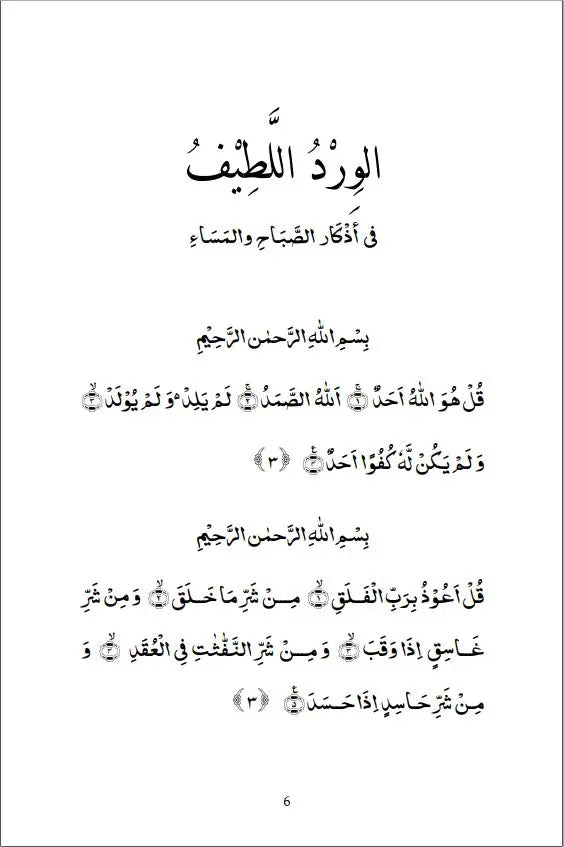 الوِرْدُ اللَّطِيْفُ
فى أَذْكَار الصَّبَاحِ والمَسَاءِ
بِسْمِ اللهِ الرَّحْمٰنِ الرَّحِيْمِ
قُلْ هُوَ اللهُ اَحَدٌ ۚ﴿١﴾ اَللهُ الصَّمَدُ ۚ﴿٢﴾ لَمْ يَلِدْ ەۙ وَ لَمْ يُوْلَدْ ۙ﴿٣﴾
وَ لَمْ يَكُنْ لَّهٗ كُفُوًا اَحَدٌ ﴿٤﴾ ﴿٣﴾
بِسْمِ اللهِ الرَّحْمٰنِ الرَّحِيْمِ
قُلْ اَعُوْذُ بِرَبِّ الْفَلَقِ ۙ﴿١﴾ مِـنْ شَرِّ مَا خَـلَقَ ۙ﴿٢﴾ وَ مِنْ شَرِّ
غَـاسِقٍ اِذَا وَقَبَ ۙ﴿٣﴾ وَ مِـنْ شَرِّ النَّفّٰثٰتِ فِى الْعُقَدِ ۙ﴿٤﴾ وَ
مِنْ شَرِّ حَـاسِدٍ اِذَا حَـسَدَ ﴿٥﴾ ﴿٣﴾
6